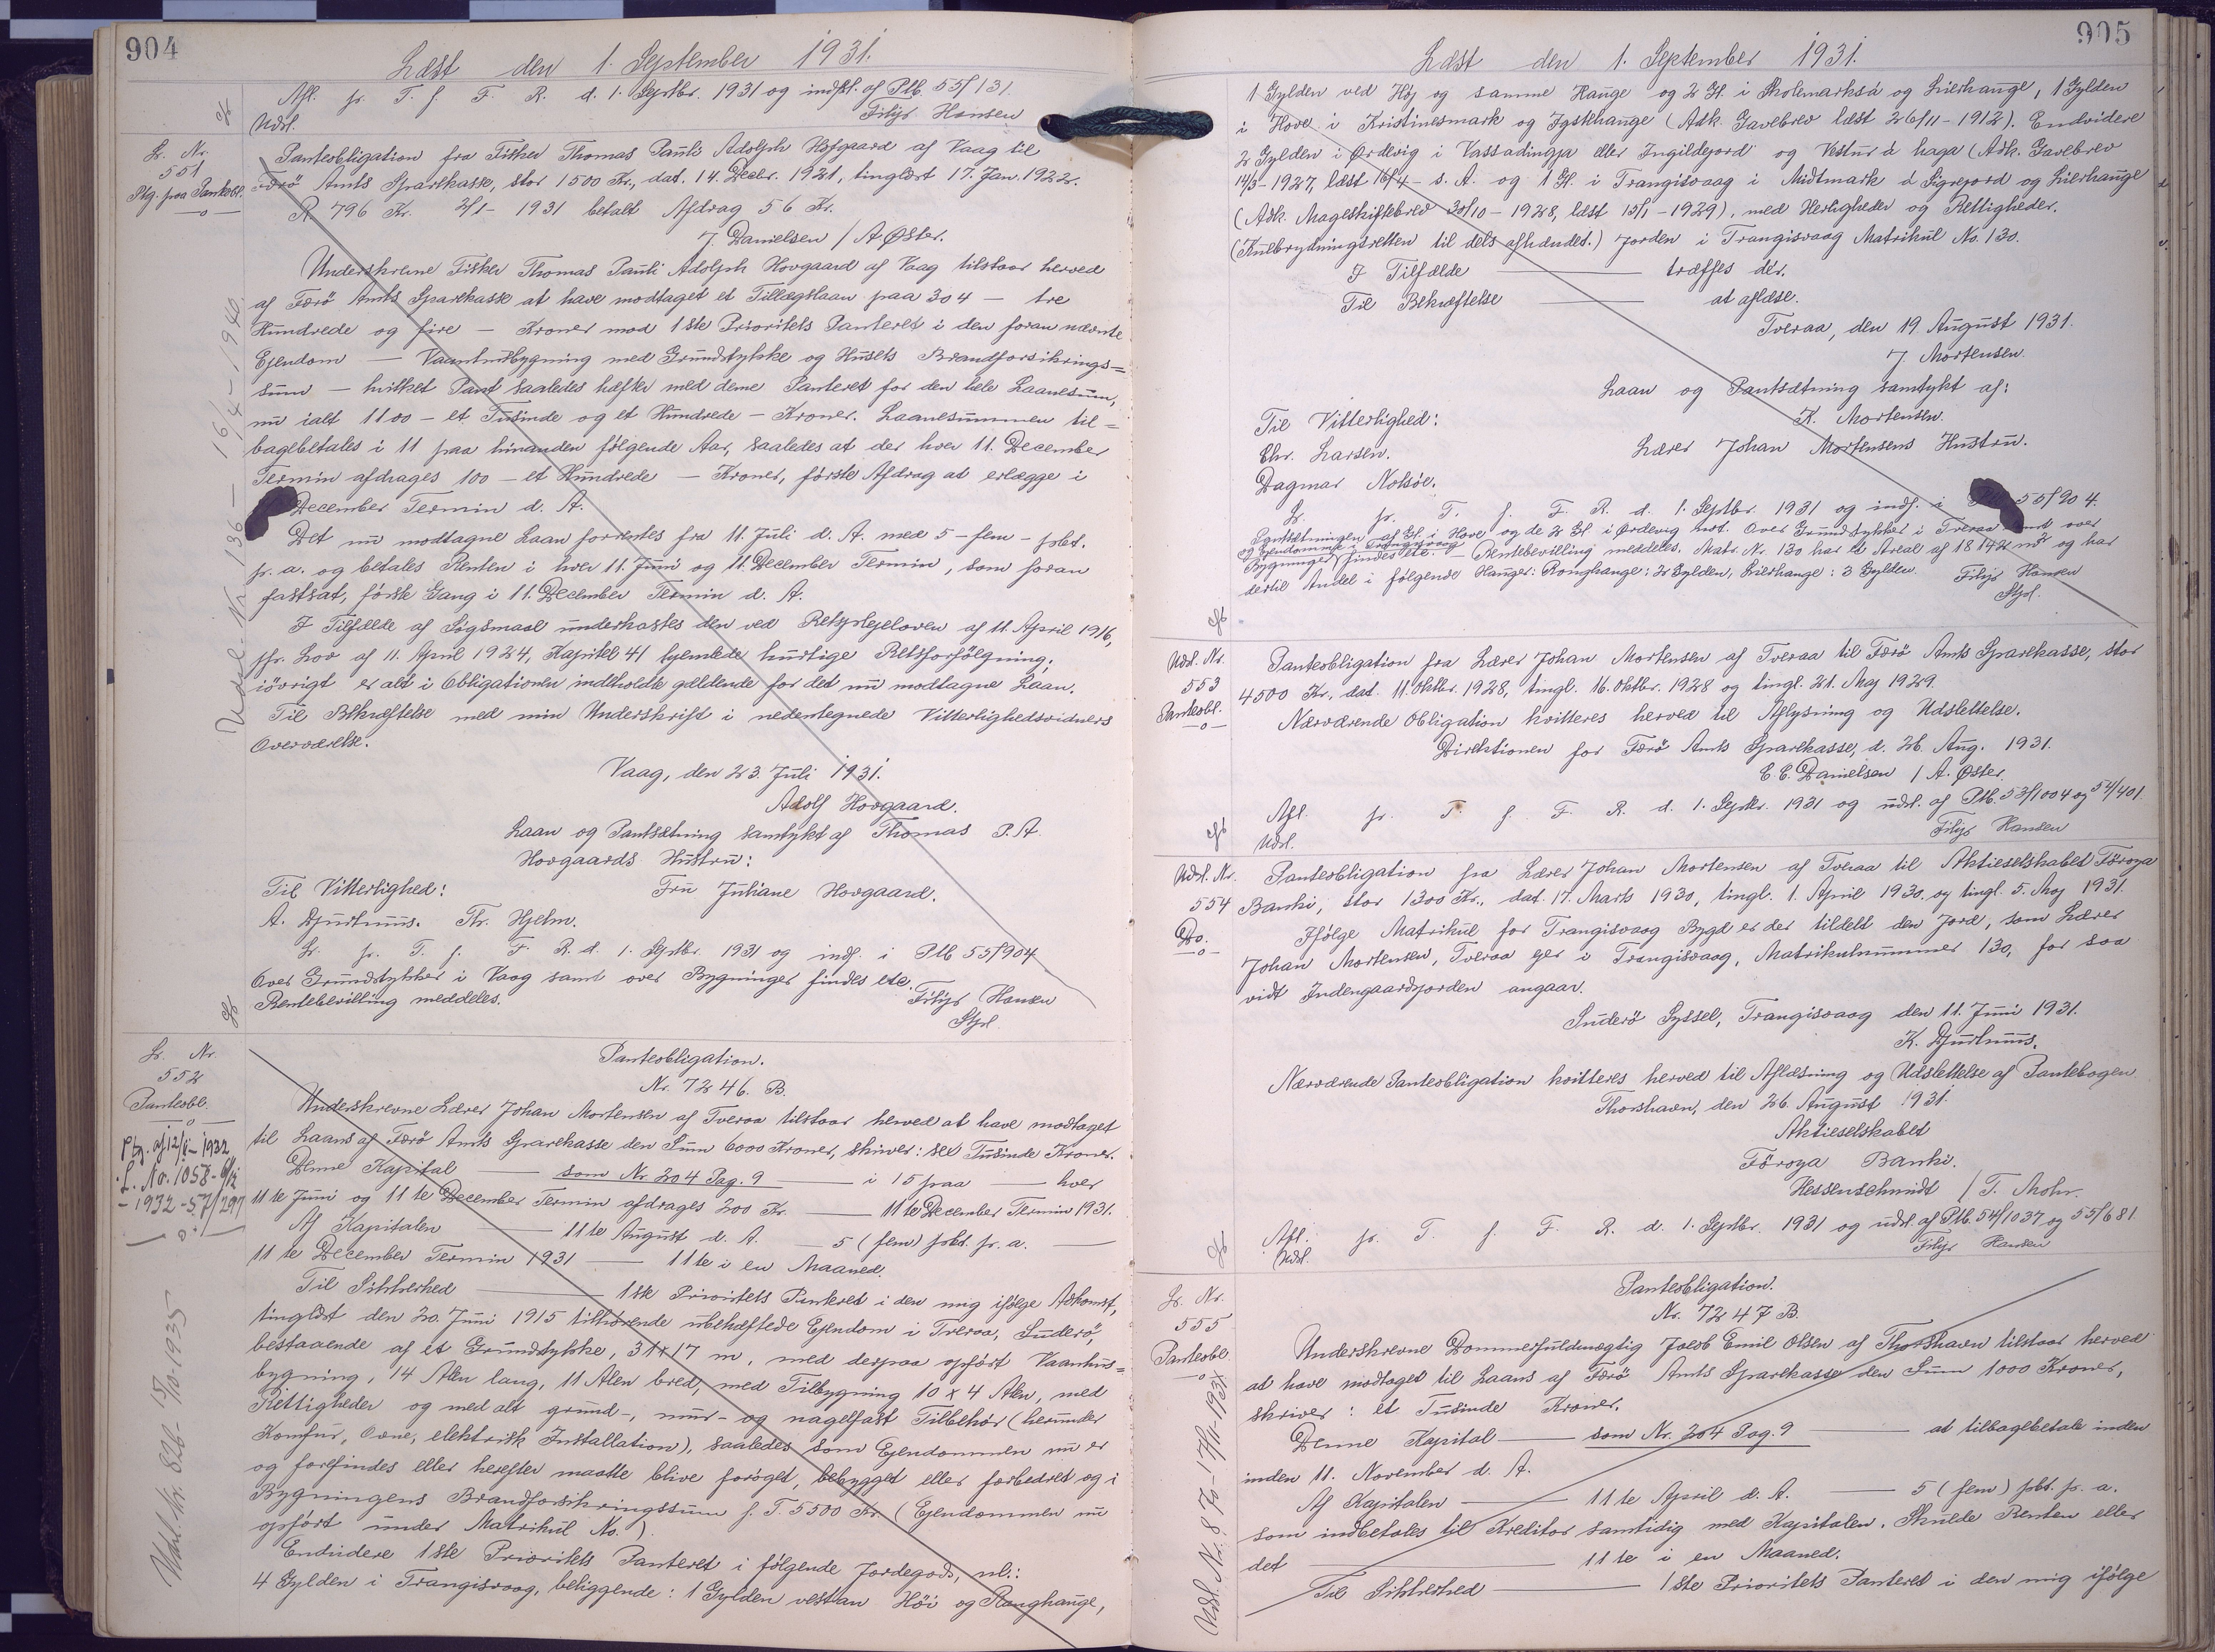 904
Læst den 1. September 1931.
Afl. fr. T. f. F. R. d. 1. Septbr. 1931 og indfkl. af Ptb. 55/131.
Udsl. Filip Hansen
L. Nr.
551
Ptg. paa Pantobl.
Panteobligation fra Fisker Thomas Pauli Adolph Hofgaard af Vaag til
Færö Amts Sparekasse, stor 1500 Kr., dat. 14. Decbr. 1921, tinglæst 17. Jan. 1922.
R 796 Kr. 2/1 - 1931 betalt Afdrag 56 Kr.
J. Danielsen / A. Øster.
Underskrevne Fisker Thomas Pauli Adolph Hovgaard af Vaag tilstaar herved
af Færö Amts Sparekasse at have modtaget et Tillægslaan paa 304 — tre
Hundrede og fire — Kroner mod 1ste Prioritets Panteret i den foran nævnte
Ejendom — Vaaningsbygning med Grundstykke og Husets Brandforsikrings=
sum — hvilket Pant saaledes hæfter med denne Panteret for den hele Laanesum,
nu ialt 1100 — et Tusinde og et Hundrede — Kroner. Laanesummen til=
bagebetales i 11 paa hinanden følgende Aar, saaledes at der hver 11. December
Termin afdrages 100 — et Hundrede — Kroner, første Afdrag at erlægge i
December Termin d. A.
Det nu modtagne Laan forrentes fra 11. Juli d. A. med 5 - fem - pCt.
p. a. og betales Renten i hver 11. Juni og 11. December Termin, som foran
fastsat, første Gang i 11. December Termin d. A.
I Tilfælde af Søgsmaal underkastes den ved Retsplejeloven af 11. April 1916,
jfr. Lov af 11. April 1924, Kapitel 41 hjemlede hurtige Retsforfølgning.
iøvrigt er alt i Obligationen indeholdte gældende for det nu modtagne Laan.
Til Bekræftelse med min Underskrift i nedentegnede Vitterlighedsvidners
Overværelse.
Vaag, den 23. Juli 1931.
Adolf Hovgaard.
Laan og Pantsætning samtykt af Thomas P. A.
Hovgaards Hustru:
Til Vitterlighed: Fru Juliane Hovgaard.
A. Djurhuus. Th. Hjelm.
L. fr. T. f. F. R. d. 1. Septbr. 1931 og indf. i Ptb 55/904
Over Grundstykker i Vaag samt over Bygninger findes etc.
Rentebevilling meddeles. Filip Hansen
Stpl.
Udsl. Nr. 136 — 16/4 - 1940.
L. Nr.
552
Panteobl.
Ptg. af 12/1 - 1932
L. No. 1058 - 6/12
- 1932 - 57/297
Udsl. Nr. 826 - 15/10-1935
Panteobligation.
Nr. 7246. B.
Underskrevne Lærer Johan Mortensen af Tveraa tilstaar herved at have modtaget
til Laans af Færö Amts Sparekasse den Sum 6000 Kroner, skriver: sex Tusinde Kroner.
Denne Kapital — som Nr 204 Pag. 9 — i 15 paa — hver
11te Juni og 11te December Termin afdrages 200 Kr. — 11te December Termin 1931.
Af Kapitalen — 11te August d. A. — 5 (fem) pCt. p. a. —
11te December Termin 1931 — 11te i en Maaned.
Til Sikkerhed — 1ste Prioritets Panteret i den mig ifølge Adkomst,
tinglæst den 20. Juni 1915 tilhørende ubehæftede Ejendom i Tveraa, Suderö,
bestaaende af et Grundstykke, 31 x 17 m, med derpaa opført Vaanhus=
bygning, 14 Alen lang, 11 Alen bred, med Tilbygning 10 x 4 Alen, med
Rettigheder og med alt grund-, mur- og nagelfast Tilbehör (herunder
Komfur, Ovne, elektrisk Installation), saaledes som Ejendommen nu er
og forefindes eller herefter maatte blive forøget, bebygget eller forbedret og i
Bygningens Brandforsikringssum f. T. 5500 Kr (Ejendommen nu
opført under Matrikul No. ).
Endvidere 1ste Prioritets Panteret i følgende Jordegods, nl.:
4 Gylden i Trangisvaag, beliggende: 1 Gylden vestan Höi og Ranghauge,
905
Læst den 1. September 1931.
1 Gylden ved Höj og samme Hauge og 2 Gl. i Skolemarksá og Lierhauge, 1 Gylden
i Hove i Kristinesmark og Ygsthauge (Adk. Gavebrev læst 26/11 - 1912). Endvidere
2 Gylden i Ørdevig i Vassadingja eller Ingildejord og Vestur á haga (Adk. Gavebrev
14/3 - 1927, læst 16/4 - s. A. og 1 Gl. i Trangisvaag i Midtmark á Sigrejord og Lierhauge
(Adk. Mageskiftebrev 30/10 - 1928, læst 15/1 - 1929), med Herligheder og Rettigheder.
(Kulbrydningsretten til dels afhændet.) Jorden i Trangisvaag Matrikul No. 130.
I Tilfælde — træffes der.
Til Bekræftelse — at aflæse.
Tveraa, den 19 August 1931.
J. Mortensen.
Laan og Pantsætning samtykt af:
Til Vitterlighed: K. Mortensen.
Chr. Larsen. Lærer Johan Mortensens Hustru.
Dagmar Nolsöe.
L. fr. T. f. F. R. d. 1. Septbr. 1931 og indf. i Ptb 55/904.
Pantsætningen af Gl. i Hove og de 2 Gl. i Ørdevig Over Grundstykker i Tveraa samt over
og Ejendomme i Trangisvaag
Bygninger findes etc. — Rentebevilling meddeles. Matr. Nr. 130 har et Areal af 18142 m² og har
dertil Andel i følgende Hauger: Ranghauge: 2 Gylden, Lierhauge: 3 Gylden. Filip Hansen
Stpl.
Udsl. Nr.
553
Panteobl.
Panteobligation fra Lærer Johan Mortensen af Tveraa til Færö Amts Sparekasse, stor
4500 Kr., dat. 11. Oktbr. 1928, tingl. 16. Oktbr. 1928 og tingl. 21. Maj 1929.
Nærværende Obligation kvitteres herved til Aflysning og Udslettelse.
Direktionen for Færö Amts Sparekasse, d. 26. Aug. 1931.
E. E. Danielsen / A. Øster.
Afl. fr. T. f. F. R. d. 1. Septbr. 1931 og udsl. af Ptb. 53/1004 og 54/401.
Udsl. Filip Hansen
Udsl. Nr.
554
Do.
Panteobligation fra Lærer Johan Mortensen af Tveraa til Aktieselskabet Föroya
Banki, stor 1300 Kr., dat. 17. Marts 1930, tingl. 1. April 1930. og tingl. 5. Maj 1931.
Ifølge Matrikul for Trangisvaag Bygd er der tildelt den Jord, som Lærer
Johan Mortensen, Tveraa ejer i Trangisvaag, Matrikulnummer 130, for saa
vidt Indengaardsjorden angaar.
Suderö Syssel, Trangisvaag den 11. Juni 1931.
K. Djurhuus.
Nærværende Panteobligation kvitteres herved til Aflæsning og Udslettelse af Pantebogen
Thorshavn, den 26. August 1931.
Aktieselskabet
Föroya Banki.
Hessenschmidt / T. Mohr.
Afl. fr. T. f. F. R. d. 1. Septbr. 1931 og udsl. af Ptb. 54/1037 og 55/681.
Udsl. Filip Hansen
L. Nr.
555
Panteobl.
Panteobligation.
Nr. 7247 B.
Underskrevne Dommerfuldmægtig Jacob Emil Olsen af Thorshavn tilstaar herved
at have modtaget til Laans af Færö Amts Sparekasse den Sum 1000 Kroner,
skriver: et Tusinde Kroner.
Denne Kapital — som Nr. 204 Pag. 9 — at tilbagebetale inden
inden 11. November d. A.
Af Kapitalen — 11te April d. A. — 5 (fem) pCt. p. a.
som indbetales til Kreditor samtidig med Kapitalen. Skulde Renten eller
det — 11te i en Maaned.
Til Sikkerhed — 1ste Prioritets Panteret i den mig ifølge